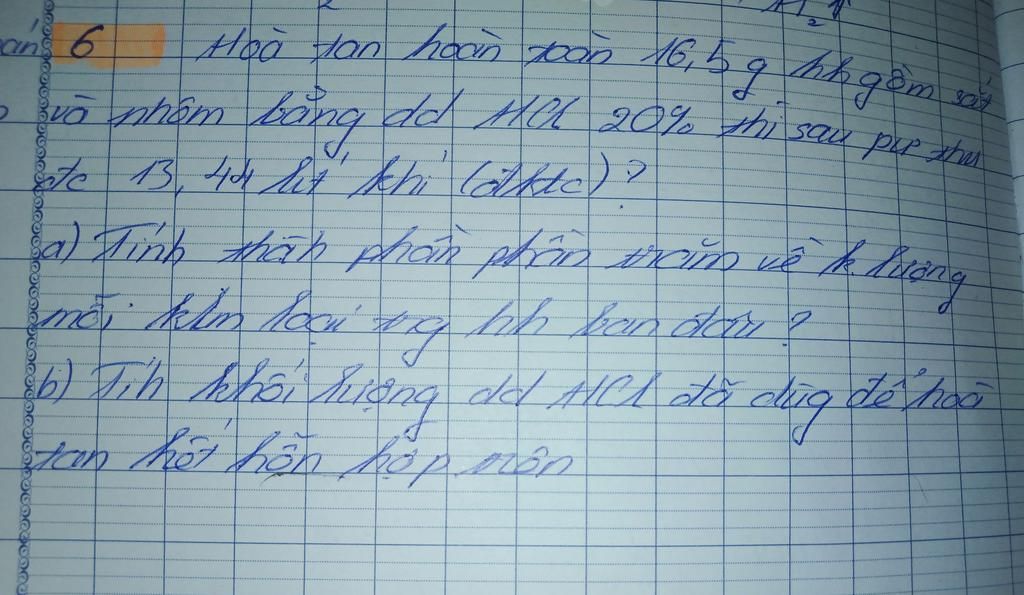 6 Hoà tan hoàn toàn 16,5g hh gồm sắt
và nhôm bằng dd HCl 20% thì sau pư thu
đc 13,44 lít khí (đktc)?
a) Tính thàh phần phần trăm về k lượng
mỗi kim loại trg hh ban đầu?
b) Tíh khối lượng dd HCl đã dùg để hoà
tan hết hỗn hợp trên